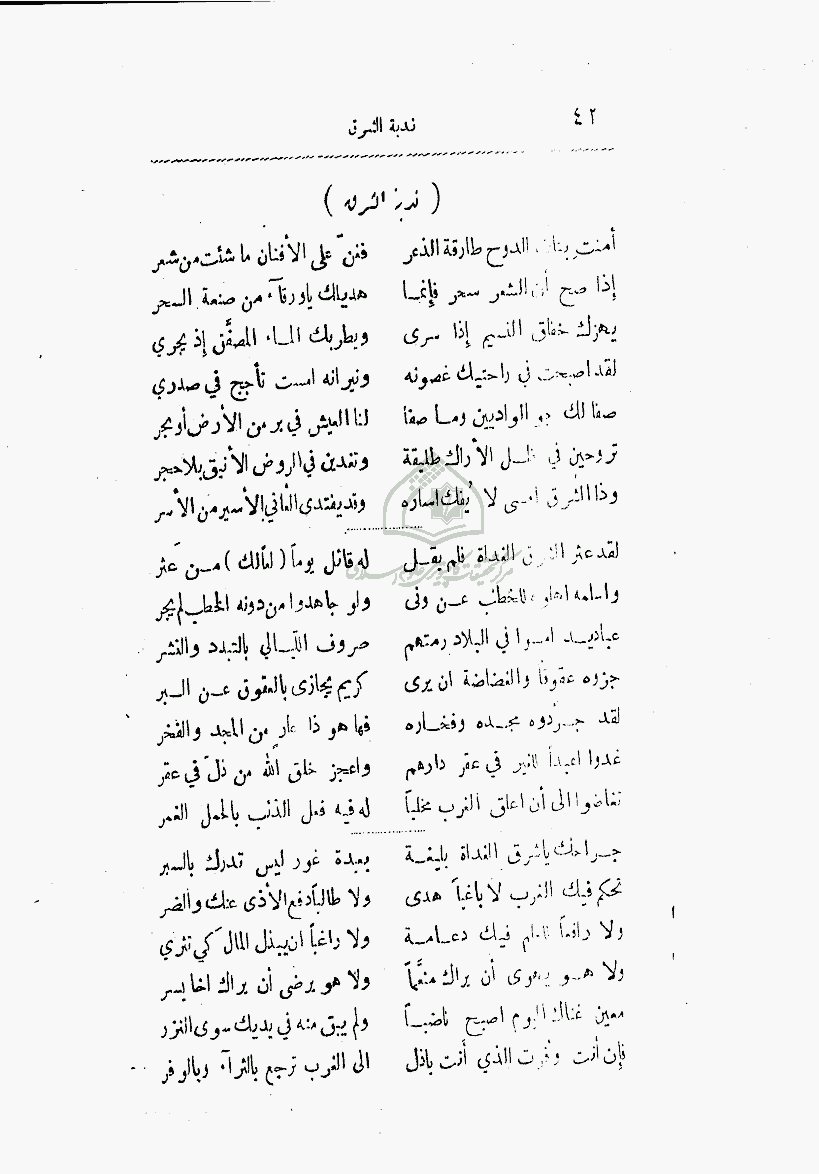 ٤٢
ندبة الشرق
( ندبة الشرق )
أمنت بنات الدوح طارقة الذعر فغنّ على الأفنان ما شئت من شعر
إذا صح أن الشعر سحر فإنمـا هديلك ياورقآء من صنعة السحر
يهزك خفاق النسيم إذا سرى ويطربك المـاء المصفَّق إذ يجري
لقد اصبحت في راحتيك غصونه ونيرانه امست تأجج في صدري
صفا لك جو الواديين ومـا صفا لنا العيش في بر من الأرض أو بحر
تروحين في ظـل الأراك طليقة وتغدين في الروض الأنيق بلا حجر
وذا الشرق امسى لا يُفك اساره وقد يفتدى العاني الأسير من الأسر
لقد عثر الشرق الغداة فلم يقـل له قائل يوماً ( لعاً لك ) مـن عثر
واسلمه اهلوه للخطب عـن ونى ولو جاهدوا من دونه الخطب لم يجر
عباديـد امسوا في البلاد رمتهم صروف الليـالي بالتبدد والنشر
جزوه عقوقاً والغضاضة ان يرى كريم يجازى بالعقوق عـن الـبر
لقد جـرّدوه مجـده وفخـاره فها هو ذا عارٍ من المجد والفخر
غدوا اعبداً للغير في عقر دارهم واعجز خلق الله من ذلّ في عقر
تغاضوا الى أن اعلق الغرب مخلباً له فيه فعل الذئب بالحمل الغمر
جـراحك ياشرق الغداة بليغـة بعيدة غور ليس تدرك بالسبر
تحكم فيك الغرب لا باغياً هدى ولا طالباً دفع الأذى عنك والضر
ولا رافعاً للعلم فيك دعـامـة ولا راغباً ان يبذل المال كي تثري
ولا هـو يهوى أن يراك منعَّماً ولا هو يرضى أن يراك اخا يسر
معين غناك اليوم اصبح ناضبـاً ولم يبق منه في يديك سوى النزر
فإن أنت وفرت الذي أنت باذل الى الغرب ترجع بالثرآء وبالوفر